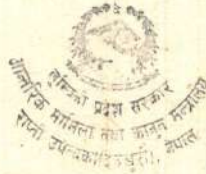 लुम्बिनी प्रदेश सरकार
आन्तरिक मामिला तथा कानून मन्त्रालय
राप्ती उपत्यका
नेपाल